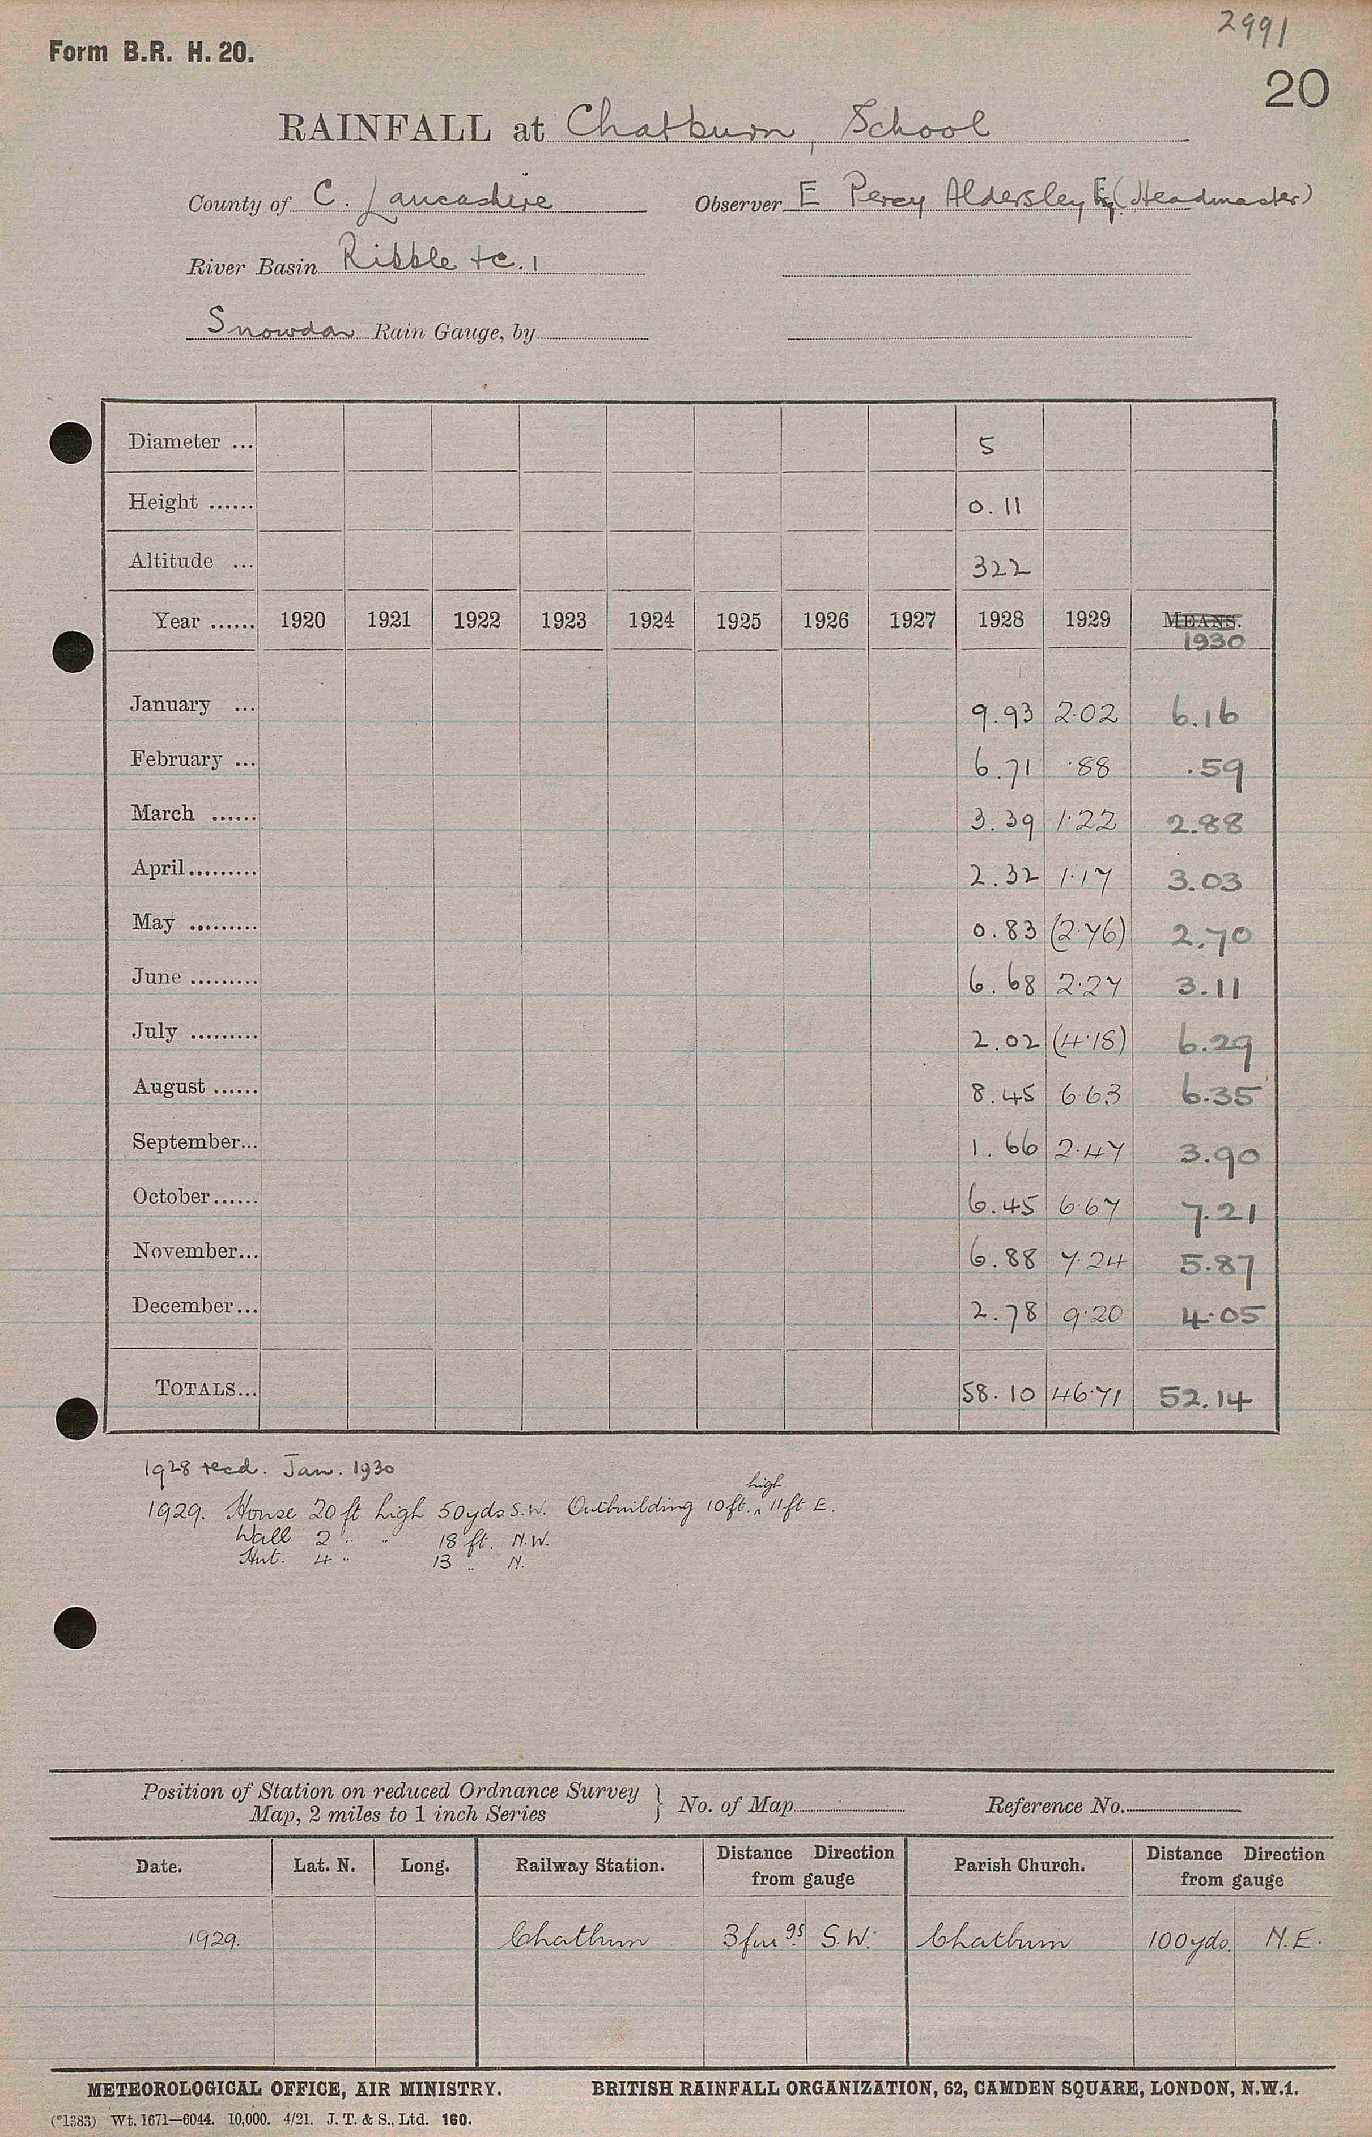 2991
Form B.R. H. 20.
20
RAINFALL at Chatburn, School
County of C. Lancashire Observer E Percy Aldersley Esq (Headmaster)
River Basin Ribble +c. 1
Snowdon Rain Gauge, by
Diameter ... 5
Height ...... 0.11
Altitude ... 322
Year ...... 1920 1921 1922 1923 1924 1925 1926 1927 1928 1929 MEANS.
1930
January ... 9.93 2.02 6.16
February ... 6.71 .88 .59
March ...... 3.39 1.22 2.88
April ......... 2.32 1.17 3.03
May ......... 0.83 (2.76) 2.70
June ......... 6.68 2.27 3.11
July ......... 2.02 (4.18) 6.29
August ...... 8.45 6.63 6.35
September... 1.66 2.47 3.90
October ...... 6.45 6.67 7.21
November... 6.88 7.24 5.87
December... 2.78 9.20 4.05
TOTALS... 58.10 46.71 52.14
1928 recd. Jan. 1930
1929. House 20 ft high 50yds S.W. Outbuilding 10ft. high 11ft E.
Wall 2 " " 18 ft. N.W.
Hut. 4 " 13 " N.
Position of Station on reduced Ordnance Survey
Map, 2 miles to 1 inch Series } No. of Map Reference No.
Date. Lat. N. Long. Railway Station. Distance Direction from gauge Parish Church. Distance Direction from gauge
1929. Chatburn 3 furgs. S.W. Chatburn 100yds. N.E.
METEOROLOGICAL OFFICE, AIR MINISTRY. BRITISH RAINFALL ORGANIZATION, 62, CAMDEN SQUARE, LONDON, N.W.1.
(*1383) Wt. 1671—6044. 10,000. 4/21. J. T. & S., Ltd. 160.